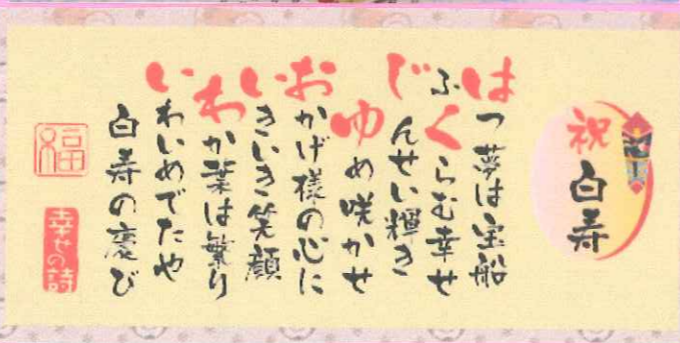 祝 白寿
はつ夢は宝船
ふくらむ幸せ
じんせい輝き
ゆめ咲かせ
おかげ様の心に
いきいき笑顔
わか葉は繁り
いわいめでたや
白寿の慶び
福
幸せの詩